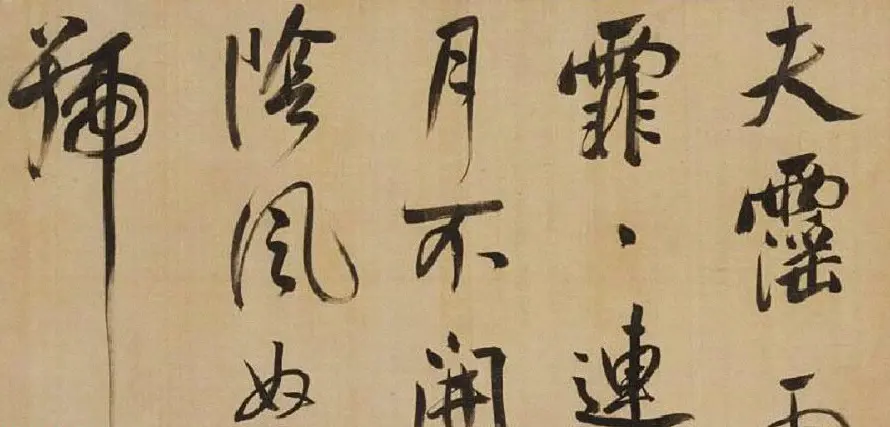 夫霪雨
霏〻連
月不開
陰風怒
號